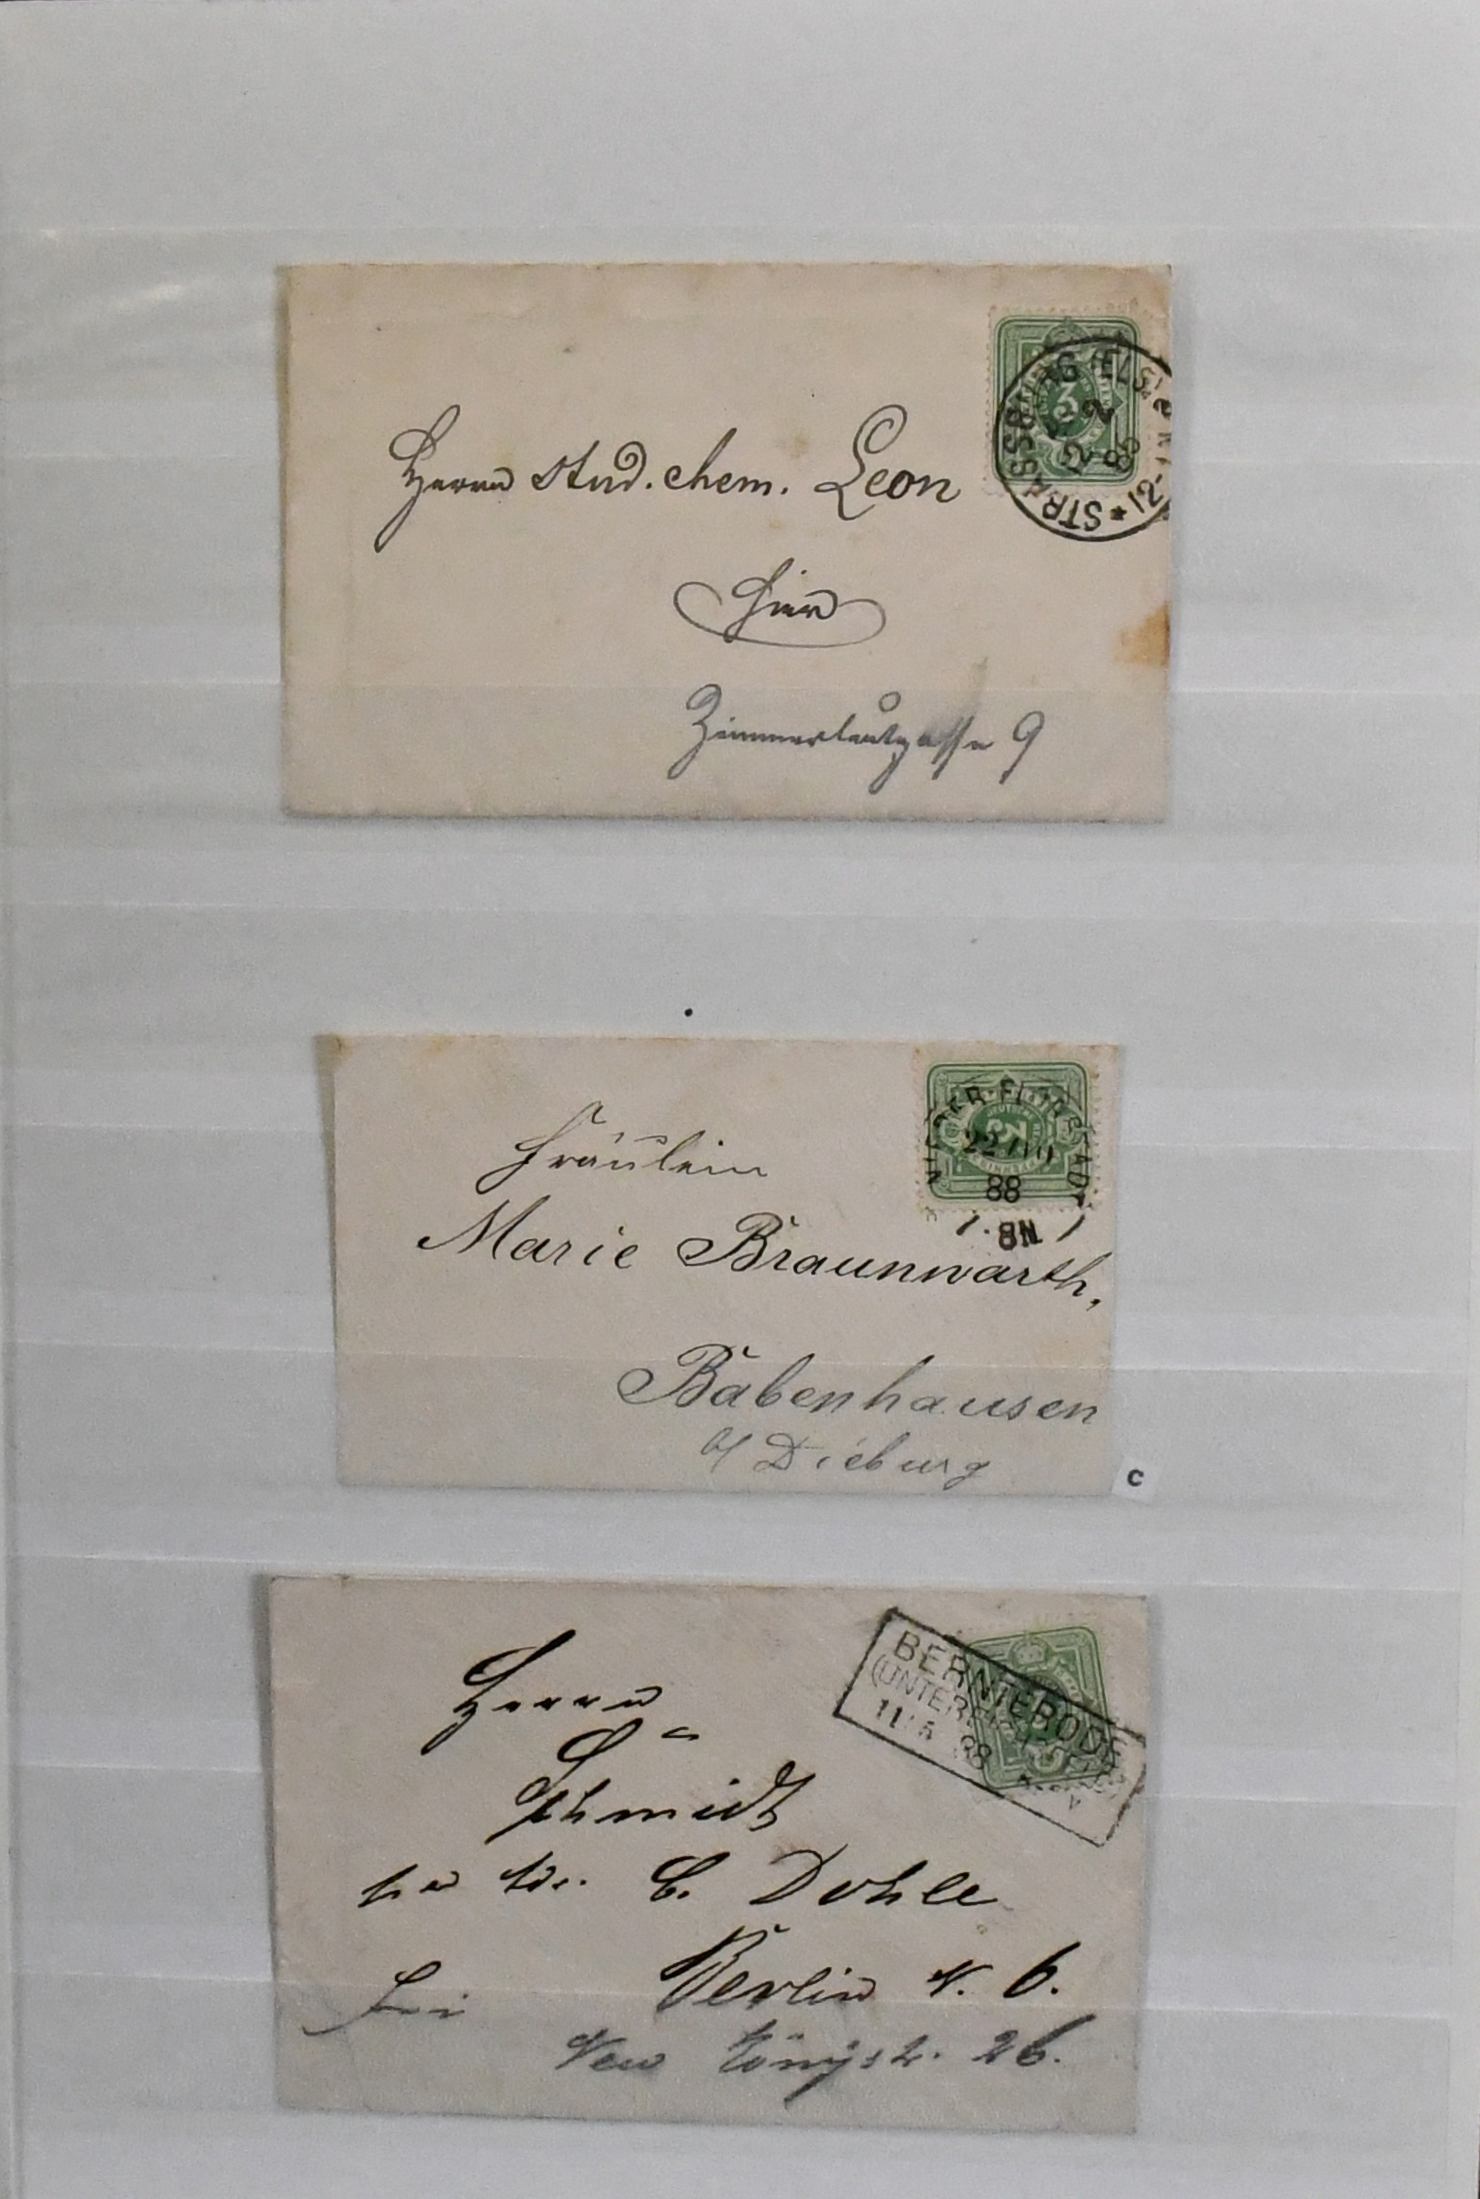 STRASSBURG (ELS.)
2 2
86
12-1N
3
Herrn stud. chem. Leon
Hier
Zimmerleutgasse 9
NIEDER-FLORSTADT
22
88
7-8N
3
Fräulein
Marie Braunwarth,
Babenhausen
b/ Dieburg
c
BERNTERODE
(UNTEREICHSFELD)
11/5 88
Herrn
Schmidt
C. Dohle
Berlin N. 6.
frei
Neu Königstr. 26.